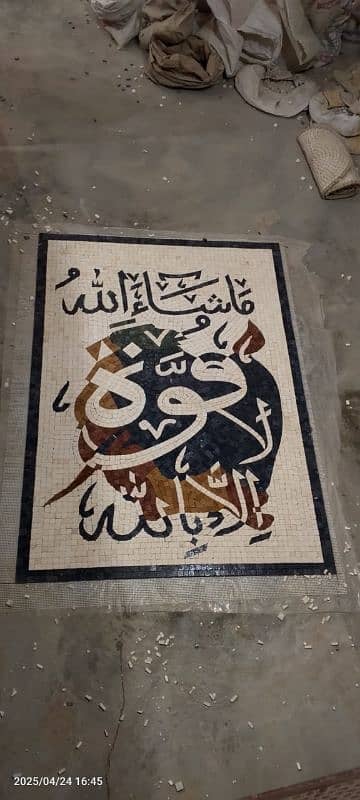 مَاشَاءَ اللهُ
لَا قُوَّةَ
إِلَّا بِاللهِ
2025/04/24 16:45